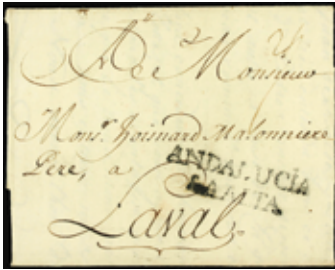 A Monsieur
Monsr. hoisnard Matonniere
Pere, a
ANDALUCÍA
BAXA
Laval